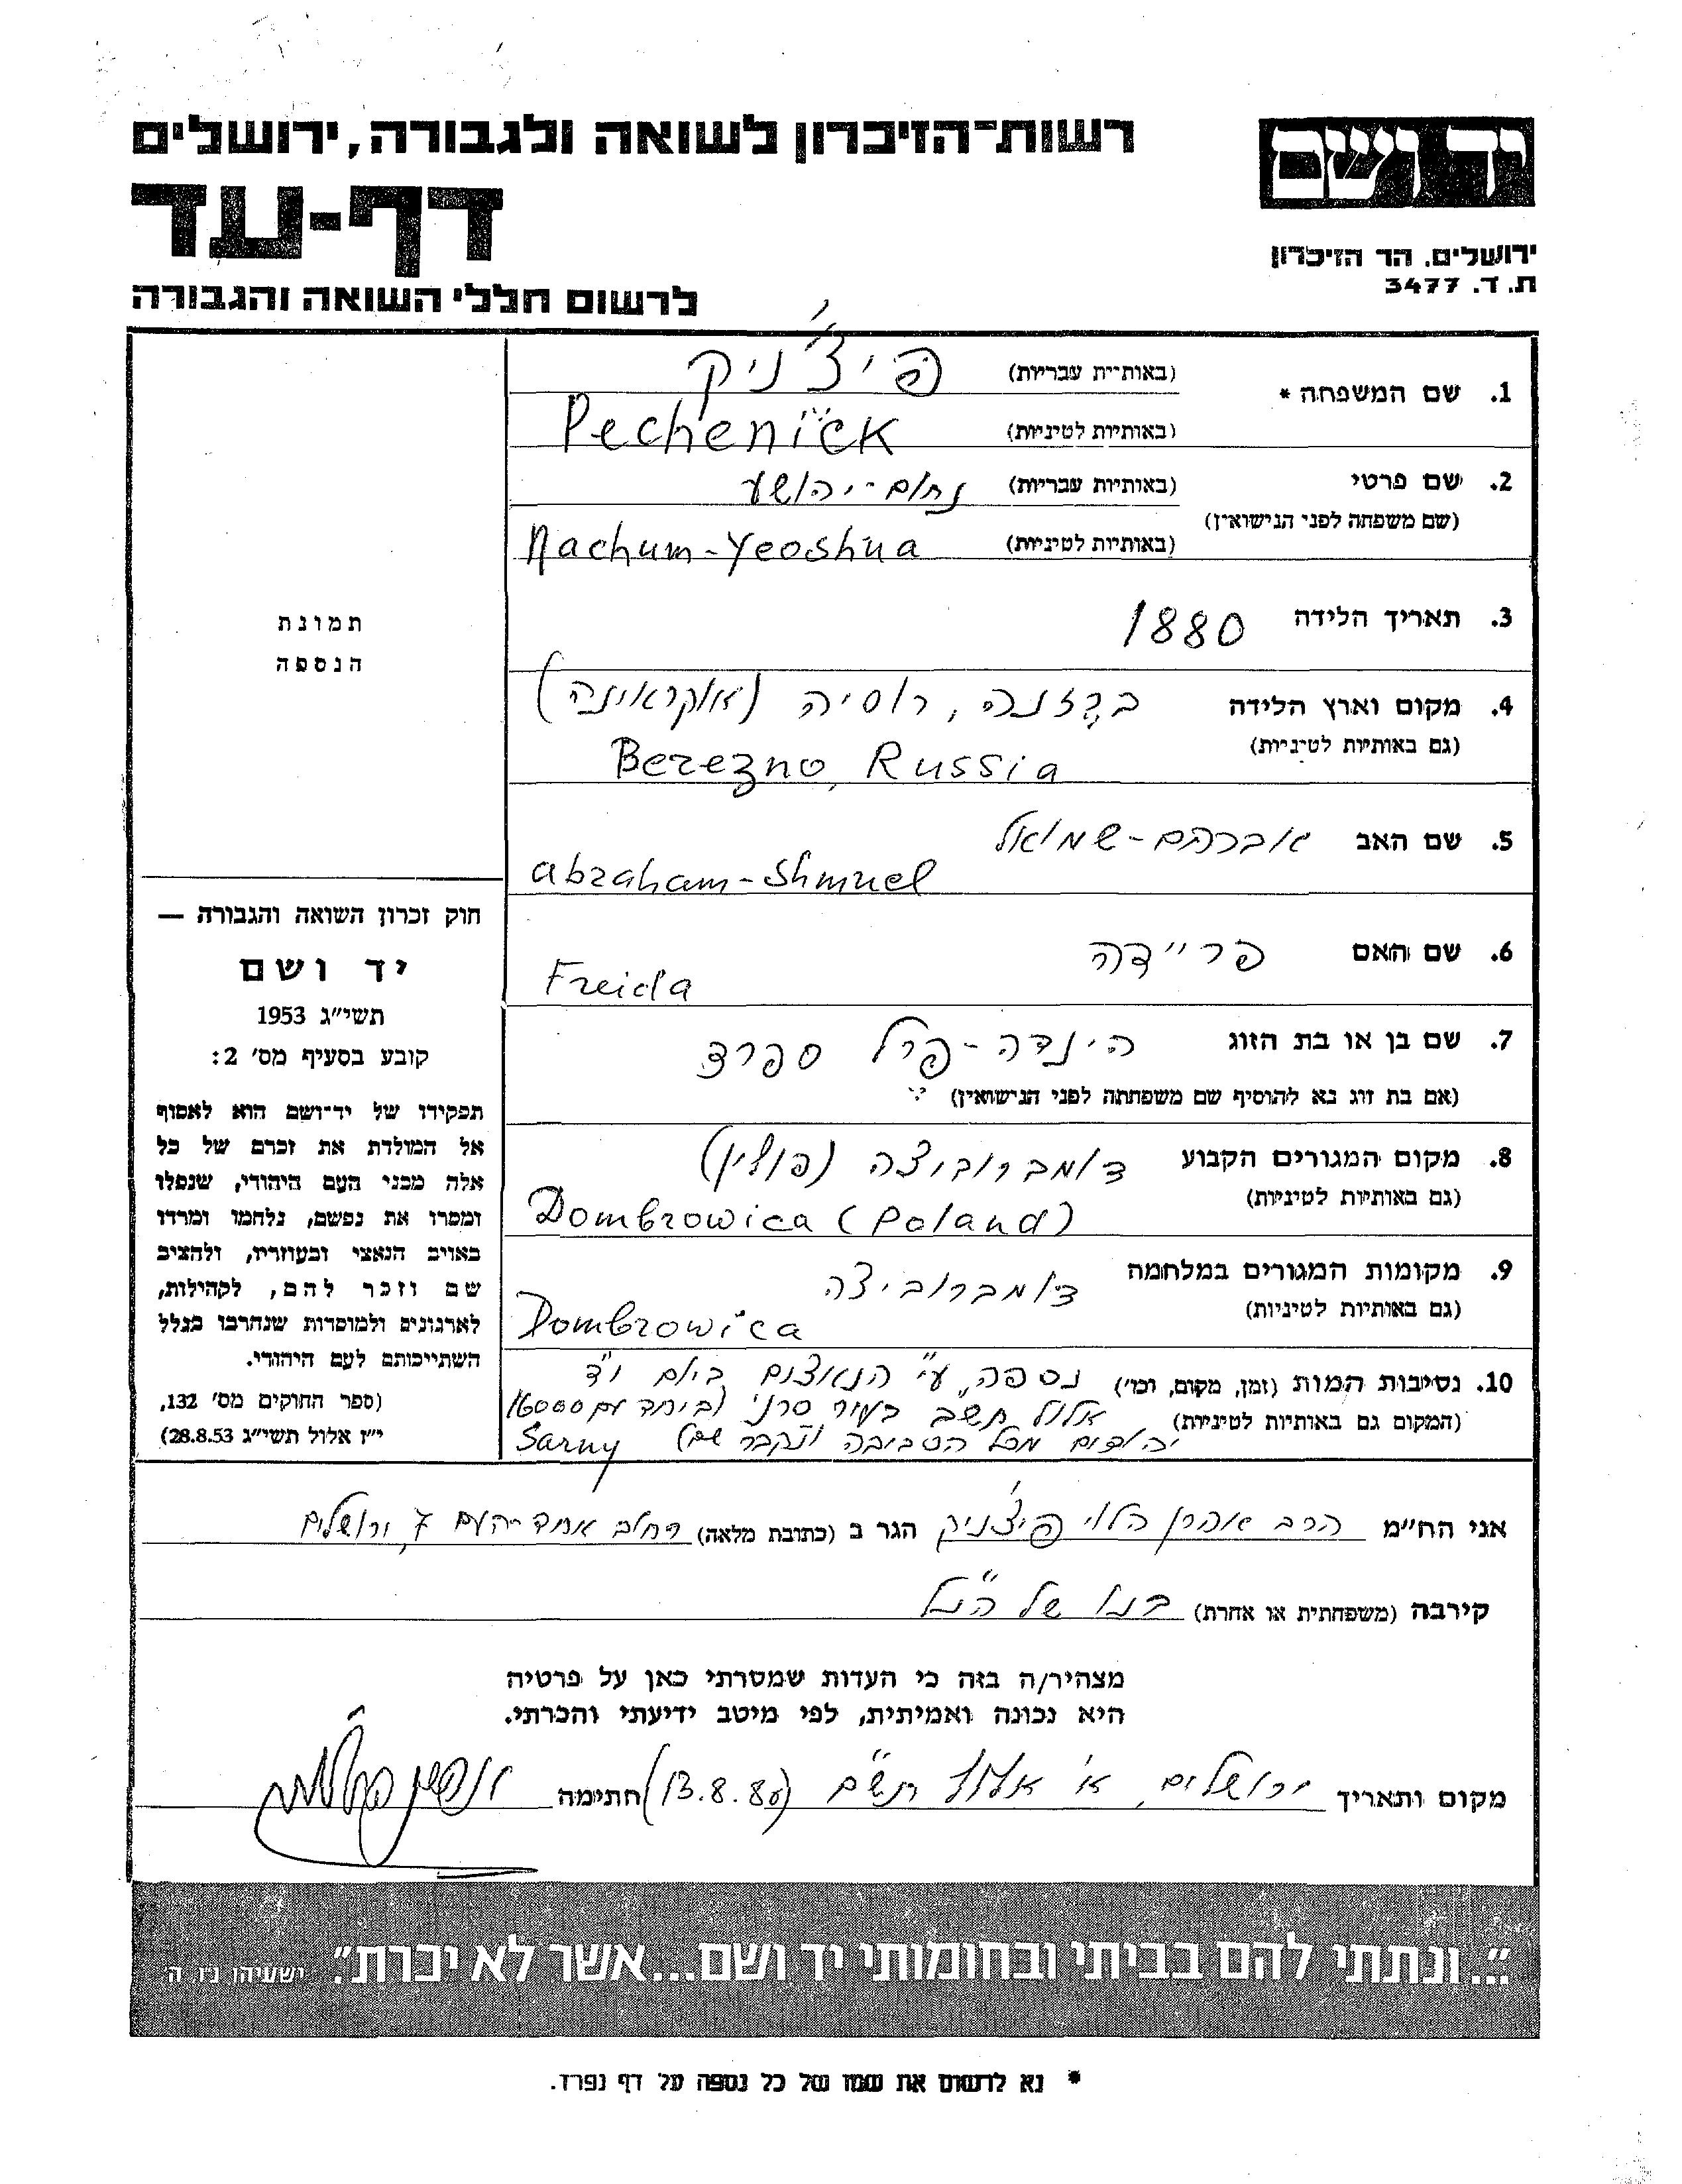 רשות־הזיכרון לשואה ולגבורה, ירושלים
יד ושם
דף-עד
ירושלים, הר הזיכרון
ת. ד. 3477
לרשום חללי השואה והגבורה
1. שם המשפחה * (באותיות עבריות) פיצ'ניק
(באותיות לטיניות) Pechenick
2. שם פרטי (באותיות עבריות) נחום-יהושע
(שם משפחה לפני הנישואין)
(באותיות לטיניות) Nachum-Yeoshua
3. תאריך הלידה 1880
4. מקום וארץ הלידה ברזנה, רוסיה (אוקראינה)
(גם באותיות לטיניות)
Berezno, Russia
5. שם האב אברהם-שמואל
Abraham-Shmuel
6. שם האם פריידה
Freida
7. שם בן או בת הזוג הינדה-פרל ספרד
(אם בת זוג נא להוסיף שם משפחתה לפני הנישואין)
8. מקום המגורים הקבוע דומברוביצה (פולין)
(גם באותיות לטיניות)
Dombrowica (Poland)
9. מקומות המגורים במלחמה דומברוביצה
(גם באותיות לטיניות)
Dombrowica
10. נסיבות המות (זמן, מקום, וכו') נספה ע"י הנאצים ביום י"ד
(המקום גם באותיות לטיניות) אלול תש"ב בעיר סרני (ביחד עם 16000
יהודים מכל הסביבה ונקבר שם) Sarny
תמונת
הנספה
חוק זכרון השואה והגבורה —
יד ושם
תשי"ג 1953
קובע בסעיף מס' 2:
תפקידו של יד־ושם הוא לאסוף
אל המולדת את זכרם של כל
אלה מבני העם היהודי, שנפלו
ומסרו את נפשם, נלחמו ומרדו
באויב הנאצי ובעוזריו, ולהציב
שם וזכר להם, לקהילות,
לארגונים ולמוסדות שנחרבו בגלל
השתייכותם לעם היהודי.
(ספר החוקים מס' 132,
י"ז אלול תשי"ג 28.8.53)
אני הח"מ הרב אהרן הלוי פיצ'ניק הגר ב (כתובת מלאה) רחוב אחד-העם 7, ירושלים
קירבה (משפחתית או אחרת) בנו של הנ"ל
מצהיר/ה בזה כי העדות שמסרתי כאן על פרטיה
היא נכונה ואמיתית, לפי מיטב ידיעתי והכרתי.
מקום ותאריך ירושלים, א' אלול תש"ם (13.8.80) חתימה
"...ונתתי להם בביתי ובחומותי יד ושם...אשר לא יכרת". ישעיהו נ"ו ה'
* נא לרשום את שמו של כל נספה על דף נפרד.